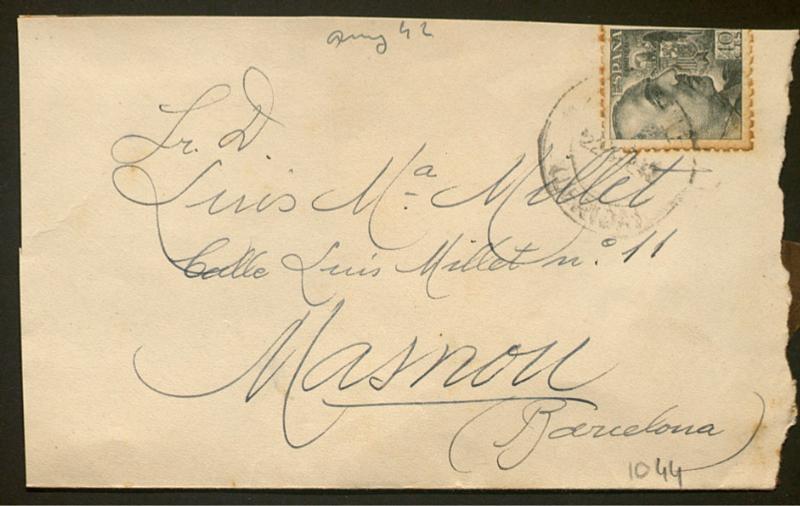 42
ESPAÑA
40
CTS
Sr. D.
Luis Mª Millet
Calle Luis Millet nº 11
Masnou
(Barcelona)
1044